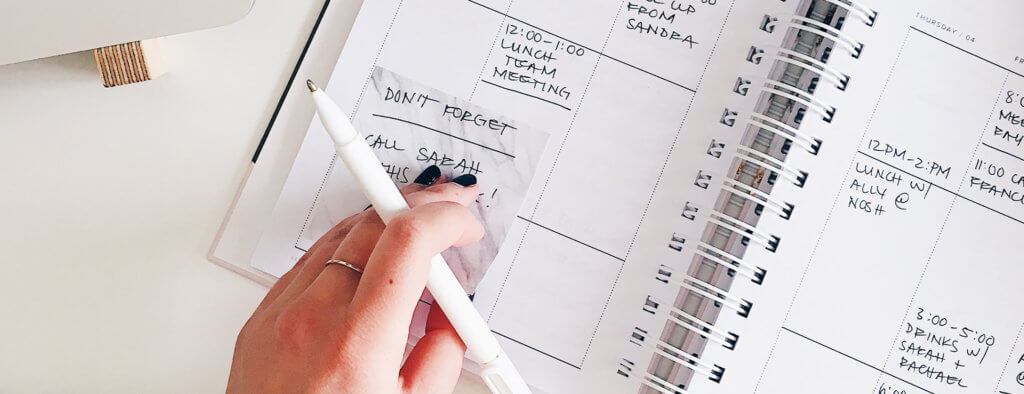 UP
FROM
SANDRA
12:00-1:00
LUNCH
TEAM
MEETING
DON'T FORGET
CALL SARAH
THURSDAY / 04
12PM-2PM
LUNCH W/
ALLY @
NOSH
3:00-5:00
DRINKS W/
SARAH +
RACHAEL
11:00